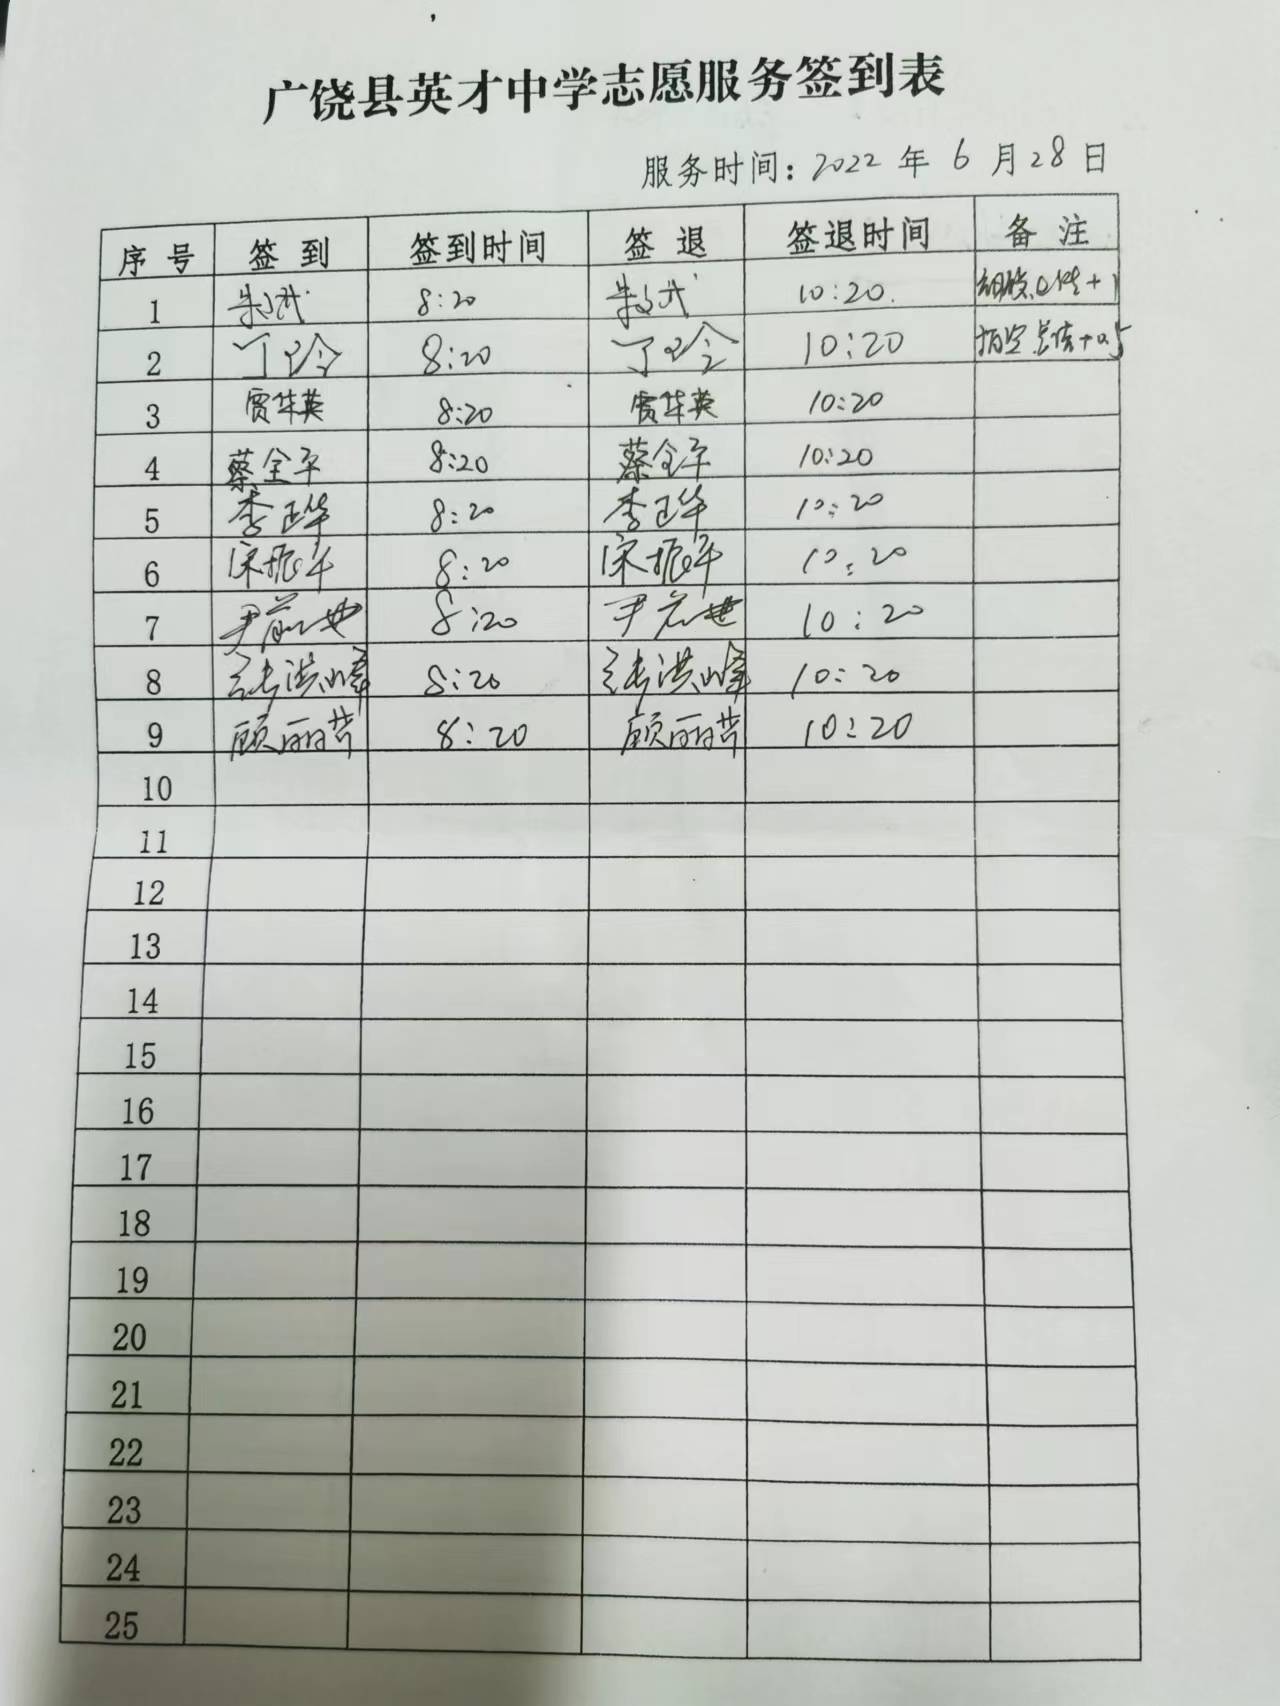 广饶县英才中学志愿服务签到表
服务时间：2022 年 6 月 28 日
序号 签到 签到时间 签退 签退时间 备注
1 8:20 10:20.
2 丁玲 8:20 丁玲 10:20 +0.5
3 贾华英 8:20 贾华英 10:20
4 蔡全平 8:20 蔡全平 10:20
5 李玉华 8:20 李玉华 10:20
6 宋振军 8:20 宋振军 10:20
7 8:20 10:20
8 张洪峰 8:20 张洪峰 10:20
9 顾丽芹 8:20 顾丽芹 10:20
10
11
12
13
14
15
16
17
18
19
20
21
22
23
24
25